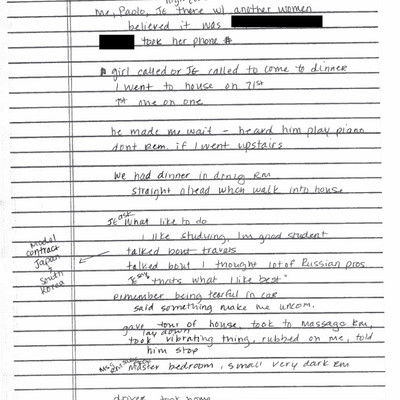 me, Paolo, JE there w/ another women
believed it was
took her phone #
girl called or JE called to come to dinner
I went to house on 71st
1st one on one
he made me wait - heard him play piano
dont rem. if I went upstairs
we had dinner in denig rm
straight ahead when walk into house
JE ask what like to do
I like studying, Im good student
Model contract Japan + South Korea
talked bout travels
talked bout I thought lot of Russian pros.
JE say "thats what I like best"
remember being tearful in car
said something make me uncom.
gave tour of house, took to massage rm,
lay down
took vibrating thing, rubbed on me, told
him stop
master bedroom, small very dark rm
driver took home